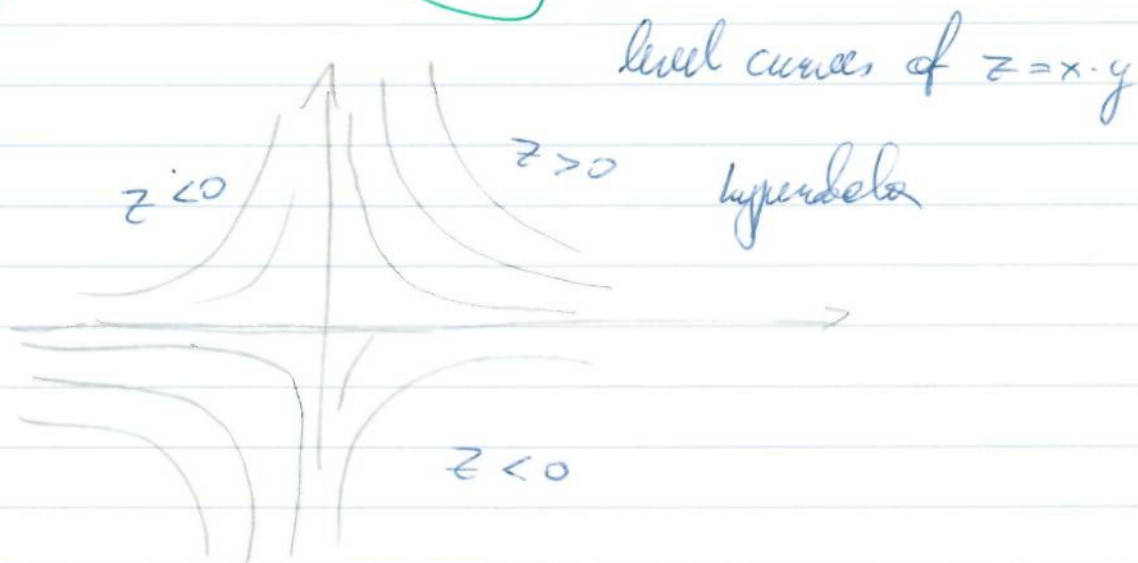 level curves of z = x · y
z < 0
z > 0
hyperbola
z < 0